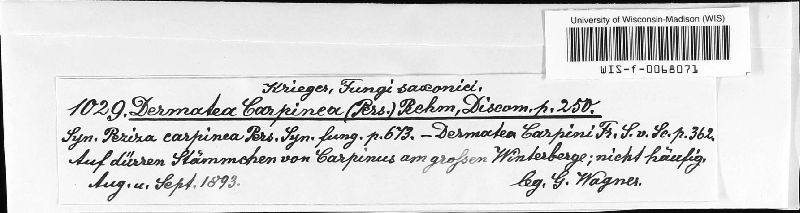 University of Wisconsin-Madison (WIS)
WIS-f-0068071
Krieger, Fungi saxonici.
1029. Dermatea Carpinea (Pers.) Rehm, Discom. p. 250.
Syn. Peziza carpinea Pers. Syn. fung. p. 673. – Dermatea Carpini Fr. S. v. Sc. p. 362.
Auf dürren Stämmchen von Carpinus am großen Winterberge; nicht häufig.
Aug. u. Sept. 1893. leg. G. Wagner.